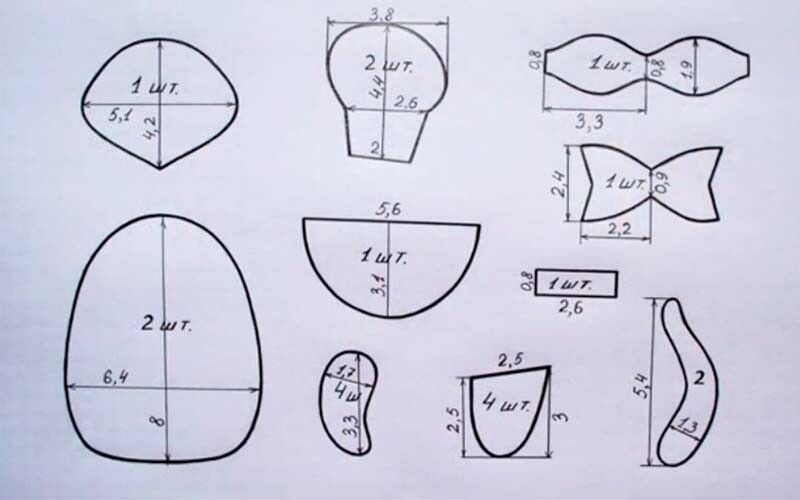 1 шт.
5,1
4,2
3,8
2 шт.
4,4
2,6
2
0,8
1 шт.
0,8
1,9
3,3
2,4
1 шт.
0,9
2,2
2 шт.
6,4
8
5,6
1 шт.
3,1
0,8
1 шт.
2,6
1,7
4 ш
3,3
2,5
4 шт.
2,5
3
5,4
2
1,3